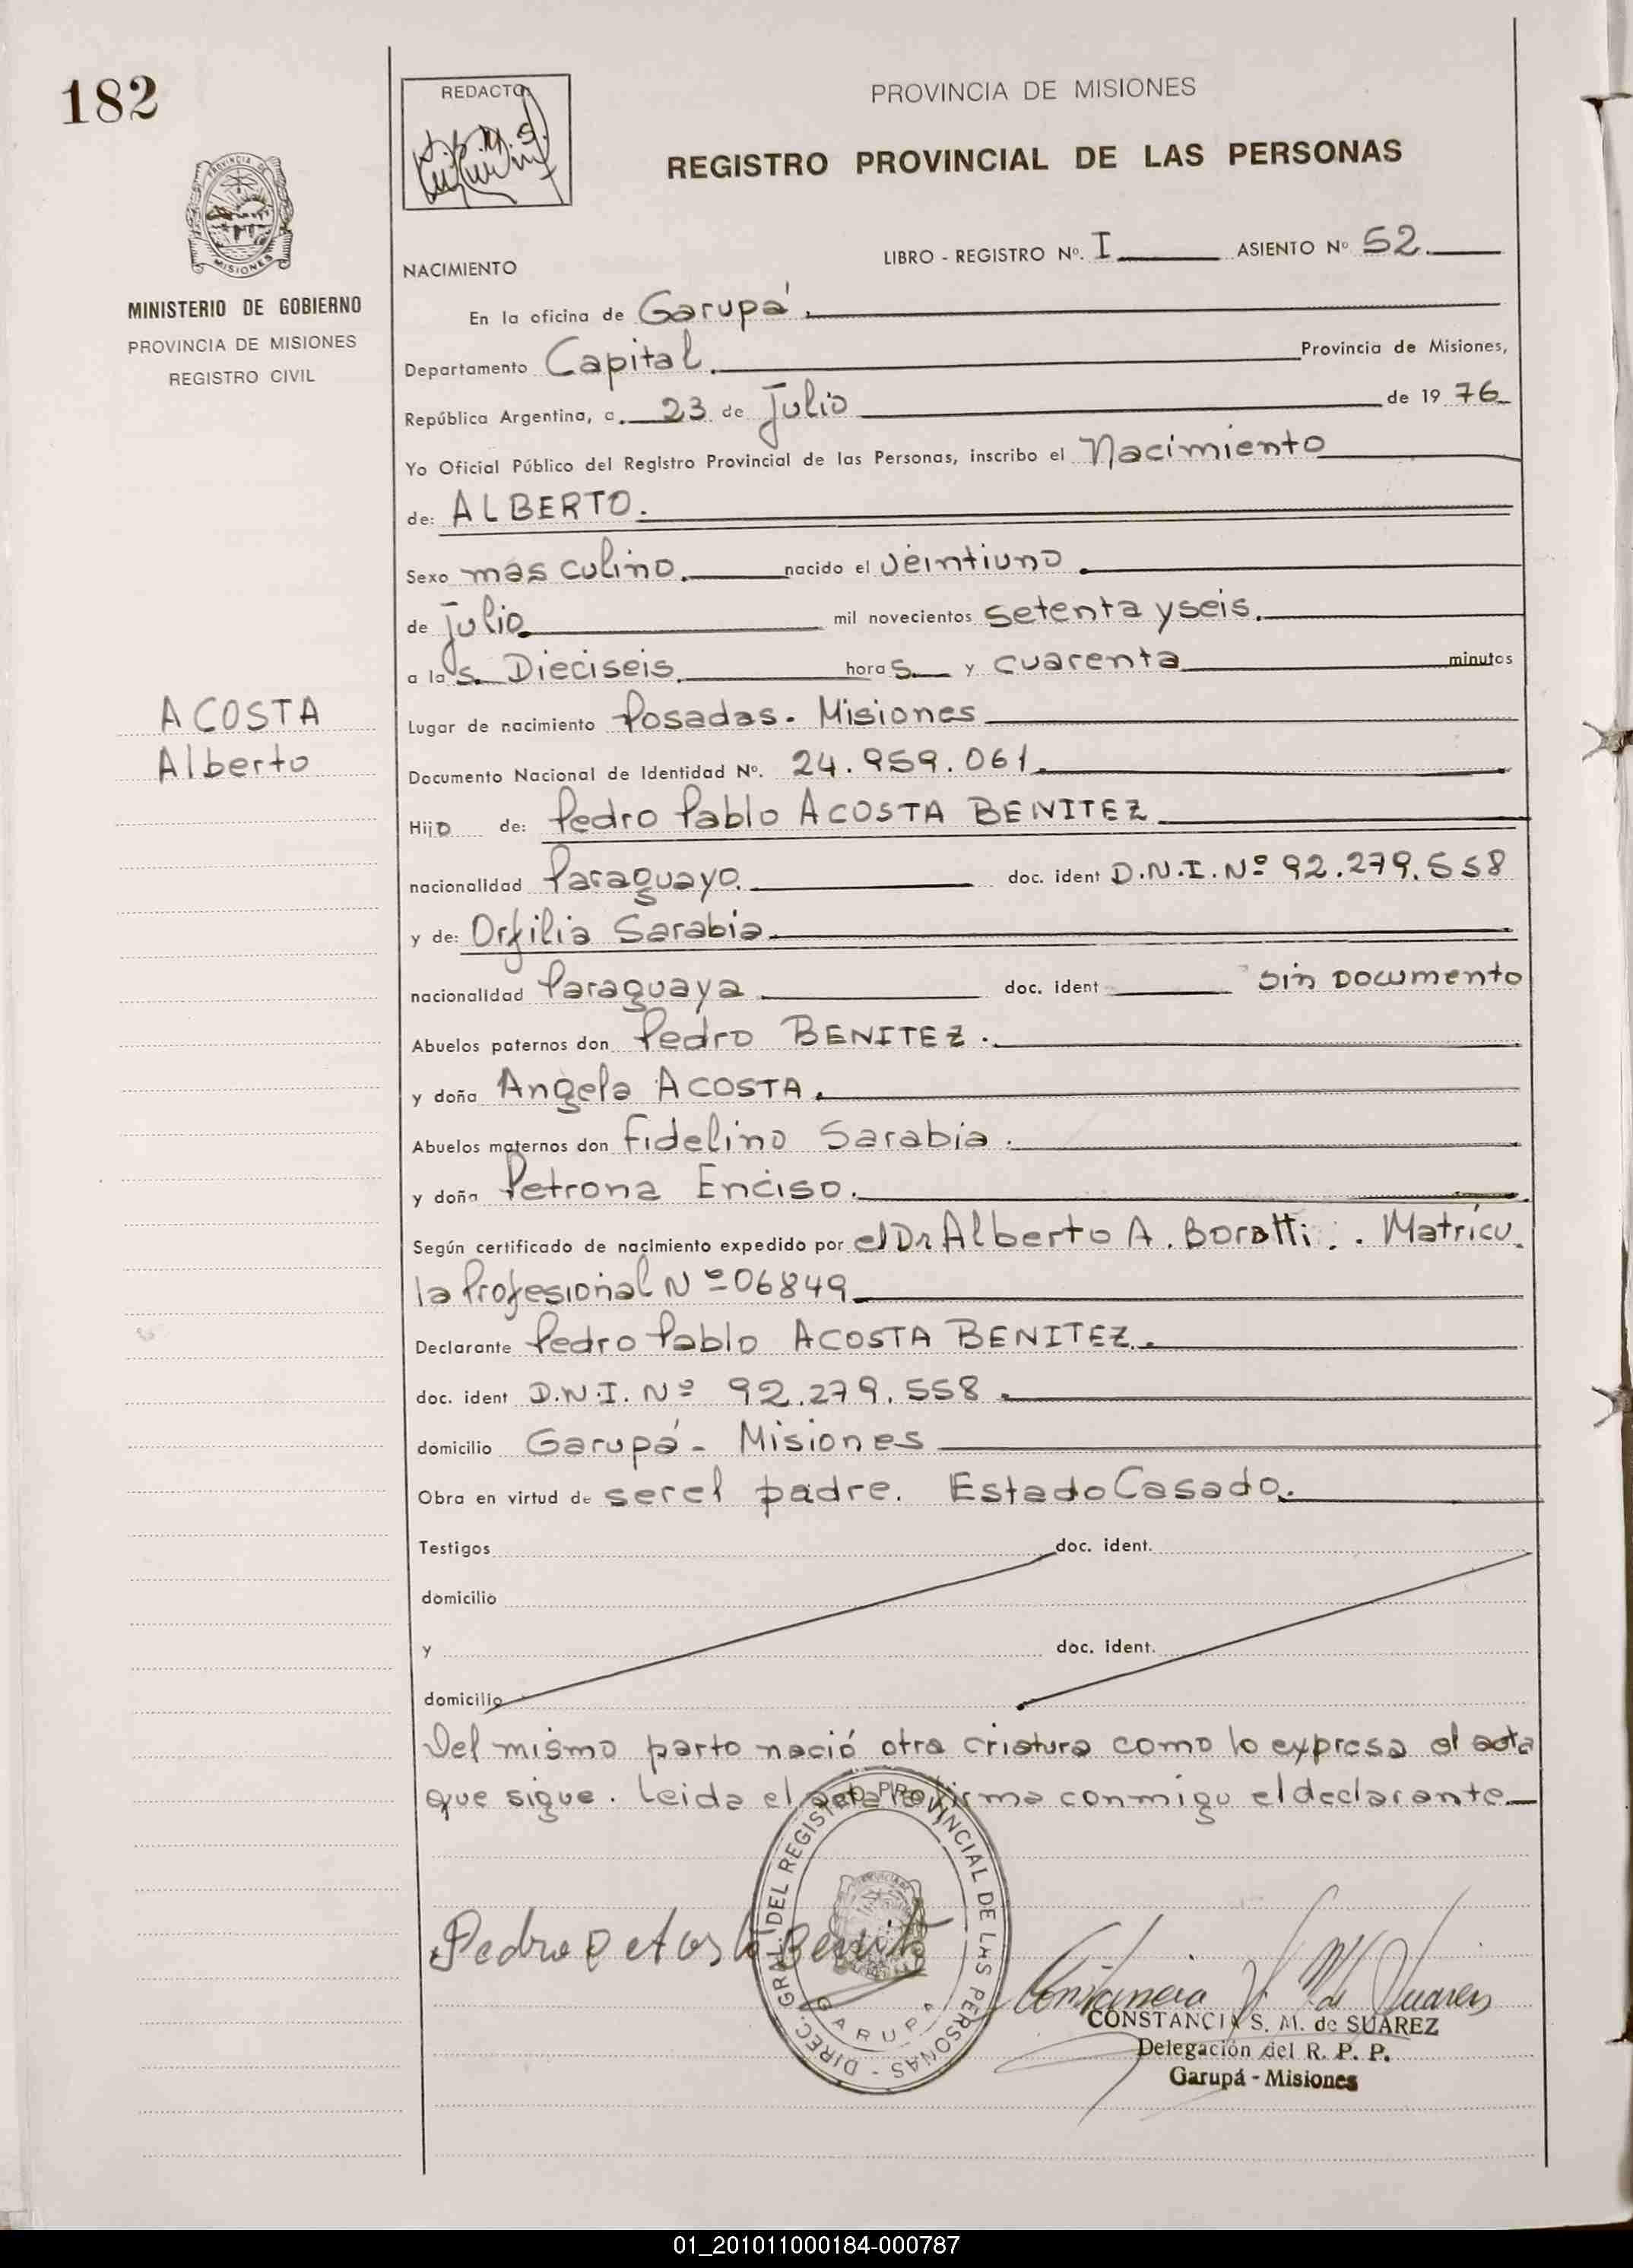 182
REDACTO
PROVINCIA DE MISIONES
REGISTRO PROVINCIAL DE LAS PERSONAS
PROVINCIA DE
MISIONES
MINISTERIO DE GOBIERNO
PROVINCIA DE MISIONES
REGISTRO CIVIL
LIBRO - REGISTRO Nº. I ASIENTO Nº 52.
NACIMIENTO
En la oficina de Garupá.
Departamento Capital. Provincia de Misiones,
República Argentina, a. 23 de Julio de 19 76
Yo Oficial Público del Registro Provincial de las Personas, inscribo el Nacimiento
de: ALBERTO.
Sexo masculino. nacido el veintiuno.
de Julio. mil novecientos setenta y seis.
a las. Dieciseis. horas y cuarenta minutos
ACOSTA
Alberto
Lugar de nacimiento Posadas. Misiones
Documento Nacional de Identidad Nº. 24.959.061.
Hijo de: Pedro Pablo ACOSTA BENITEZ
nacionalidad Paraguayo. doc. ident D.N.I. Nº 92.279.558
y de: Orfilia Sarabia.
nacionalidad Paraguaya doc. ident Sin Documento
Abuelos paternos don Pedro BENITEZ.
y doña Angela ACOSTA.
Abuelos maternos don Fidelino Sarabia.
y doña Petrona Enciso.
Según certificado de nacimiento expedido por el Dr Alberto A. Boratti. Matrícu
la Profesional Nº 06849
Declarante Pedro Pablo ACOSTA BENITEZ.
doc. ident D.N.I. Nº 92.279.558.
domicilio Garupá - Misiones
Obra en virtud de ser el padre. Estado Casado.
Testigos doc. ident.
domicilio
y doc. ident.
domicilio
Del mismo parto nació otra criatura como lo expresa el acta
que sigue. Leida el acta la firma conmigo el declarante
DIREC. GRAL. DEL REGISTRO PROVINCIAL DE LAS PERSONAS -
GARUPA
Pedro P Acosta Benitez
Constancia S. M. de Suarez
CONSTANCIA S. M. de SUAREZ
Delegación del R. P. P.
Garupá - Misiones
01_201011000184-000787